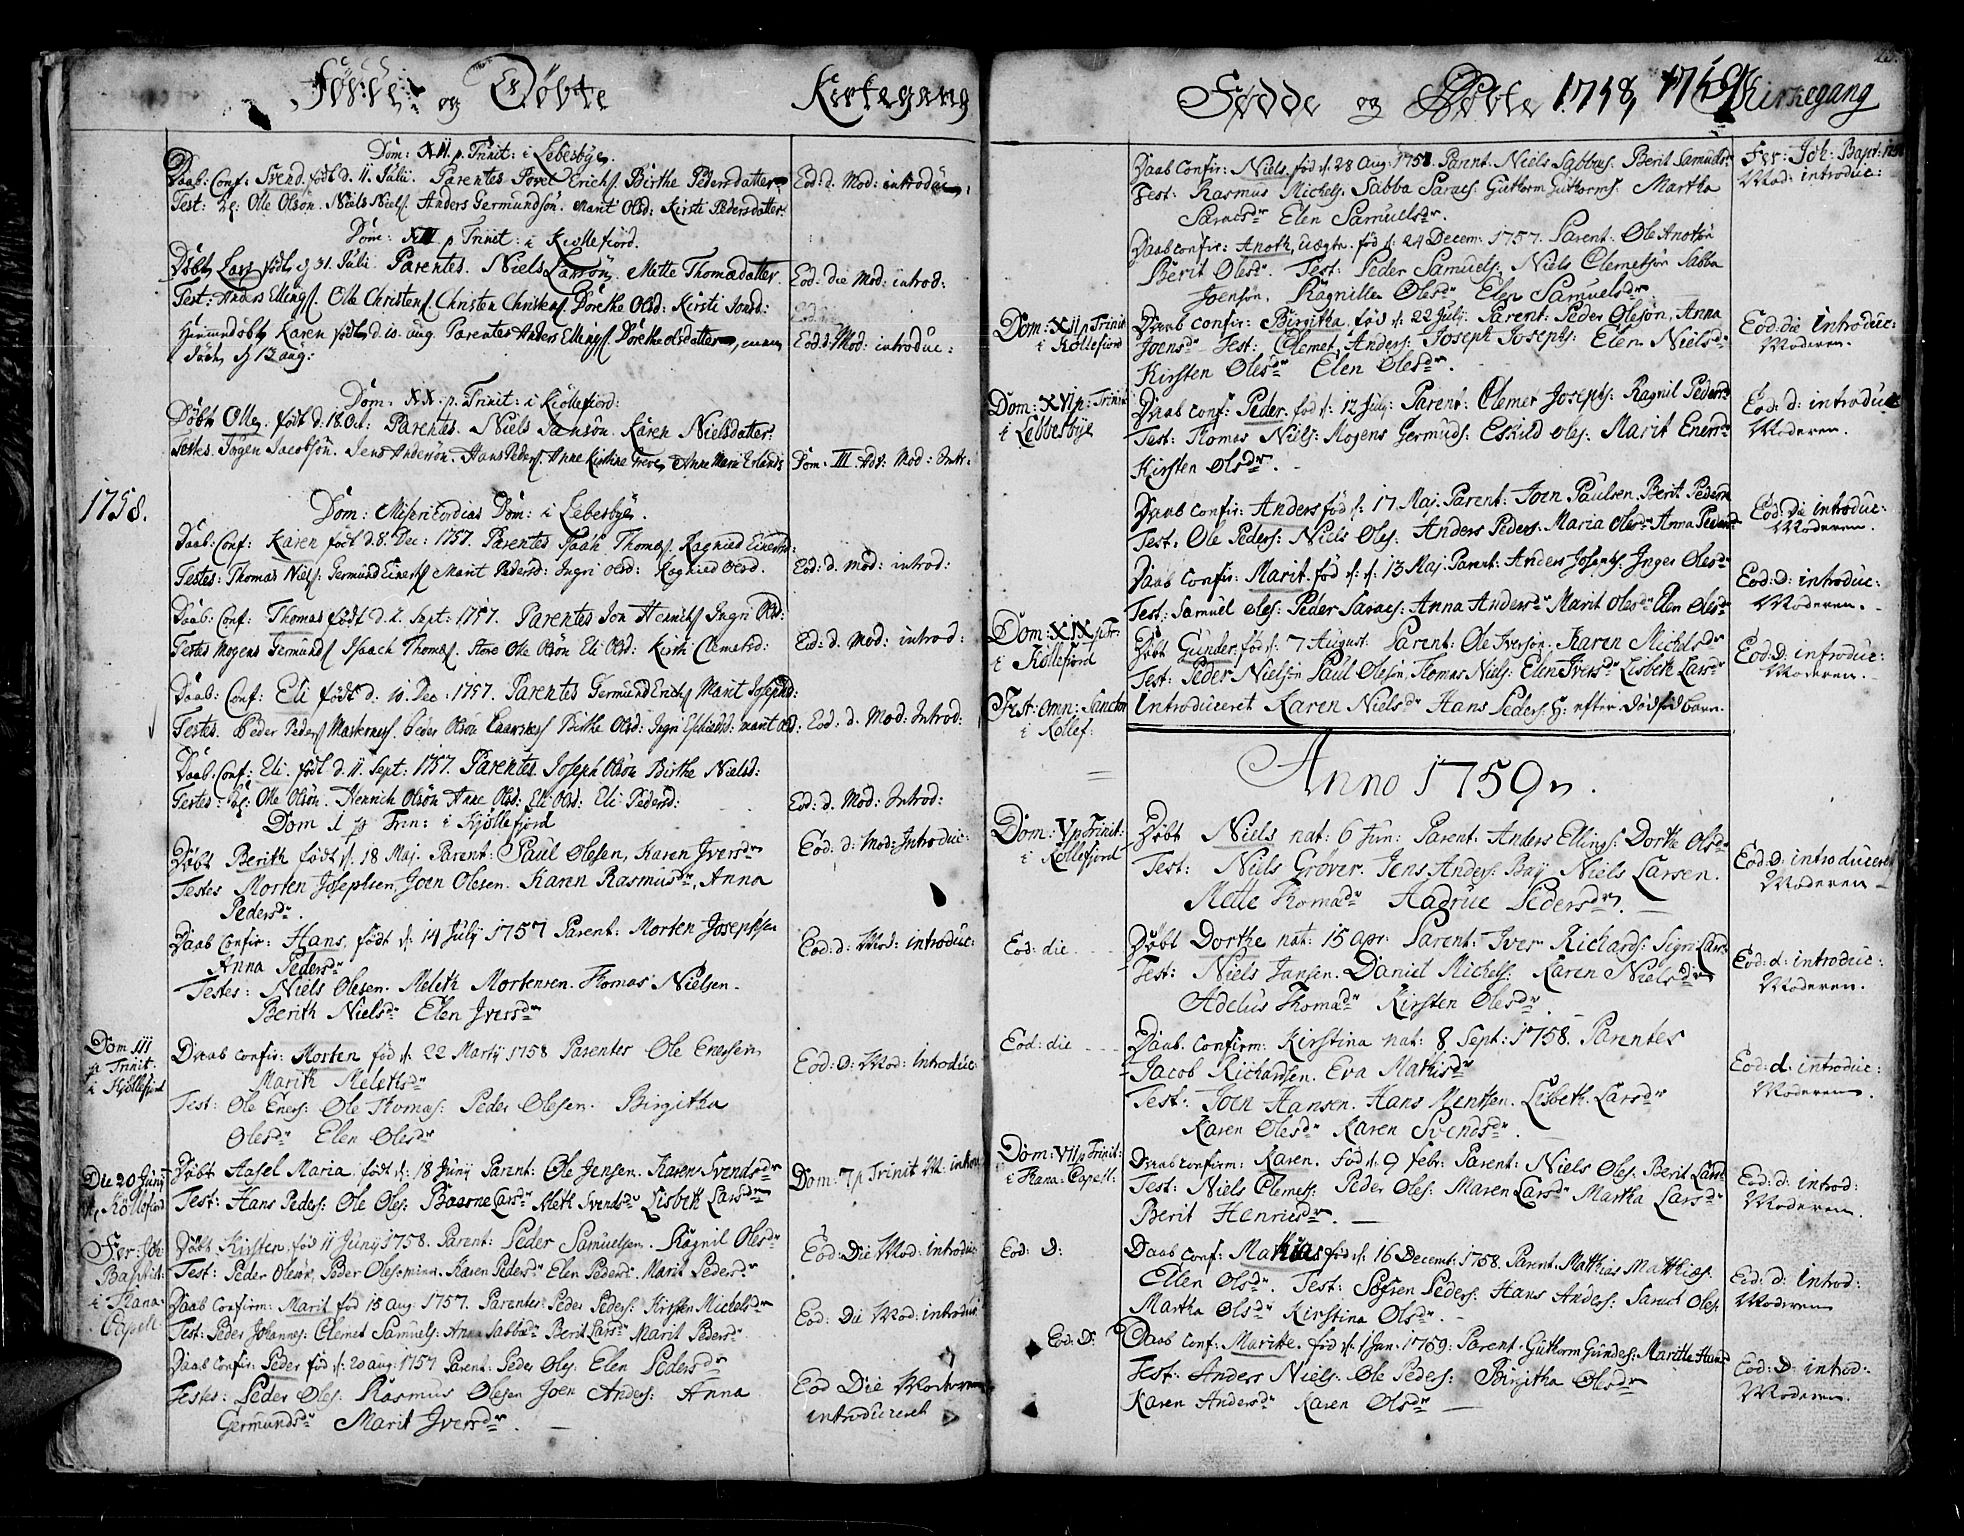 Fødde og Døbte
Kirkegang
Dom: XII p. Trinit: i Lebesbye.
Daab: Conf: Svend født d. 11 Julii. Parentes Povel Erichs. Birthe Pedersdatter
Eod: d. Mod: introduc:
Test: Olle Olsøn. Niels Niels. Anders Germundsøn. Marit Olsd: Kirsti Pedersdatter.
Dom: XIII p Trinit: i Kiøllefiord.
Døbt Lars født d 31. Julii. Parentes. Niels Larsøn. Mette Thomædatter
Eod: die Mod: introd:
Test: Anders Ellings. Olle Christens. Christen Christens. Dorethe Olsd: Kirsti Jonsd:
Hiemmedøbt Karen født d. 10. aug. Parentes Anders Ellings. Dorethe olsdatter
Eod: d: Mod: introduc:
Døbt d 13 aug:
Dom. XX. p. Trinit: i Kiøllefiord:
Døbt Olle født d. 18. Oct: Parentes. Niels Jansøn. Karen Nielsdatter:
Testes. Jørgen Jacobsøn. Jens Andersøn. Hans Peders. Anne Kirstine Greve. Anne Marie Erlands
Dom: III. Adv: Mod: Intr:
1758.
Dom: Misericordias Dom: i Lebesbye.
Daab: Conf: Karen født d. 8. Dec: 1757. Parentes Isaak Thomæs. Ragnied Einersd:
Eod: d. Mod: introd:
Testes: Thomas Niels: Germund Einers. Marit Pedersd: Ingri olsd: Ragnied olsd.
Daab: Conf: Thomas født d. 2. Sept: 1757. Parentes Jon Henrichs Ingri Olsd:
Testes Mogens Germunds Isaach Thomæs. Store Olle Olsøn Eli Olsd: Kirsti Clemetsd:
Eod: d. Mod: introd:
Daab: Conf: Eli født d. 10. Dec: 1757. Parentes Germund Erichs Marit Josephsd:
Testes. Peder Peders Peder Olsøn Birthe Olsd: Ingri marit olsd:
Eod: d. Mod: Introd:
Daab: Conf: Eli. født d. 11. Sept: 1757. Parentes Joseph Olsøn Birthe Nielsd:
Testes: Olle Olsøn. Henrich Olsøn Anne Olsd: Eli Olsd: Eli Pedersd:
Eod: d. Mod: Introd:
Dom 1 p Trin: i Kjøllefiord
Døbt Berith født d. 18 Maj. Parent: Paul Olesen, Karen Iversdr
Eod: d: Mod: Introduc:
Testes Morten Josephsen, Joen Olesen. Karen Rasmusdr, Anna
Pedersdr.
Daab Confir: Hans, født d. 14 July 1757 Parent: Morten Josephsen
Anna Pedersdr
Eod: d: Mod: introduc:
Testes: Niels Olesen. Meleth Mortensen. Thomas Nielsen.
Berith Nielsdr Elen Iversdr
Dom III
p Trinit:
i Kjøllefiord
Daab Confir: Morten fød d. 22 Marty 1758 Parentes Ole Enersen
Marith Melethsdr
Eod: D: Mod: Introduc:
Test: Ole Eners: Ole Thomas: Peder Olesen. Birgitha
Olesdr Elen Olesdr
Die 20 Juny
Kjøllefiord
Døbt Aasel Maria. født d. 18 Juny Parent: Ole Jensen. Karen Svendsdr
Test: Hans Peders: Ole Oles: Baarne Larsdr Meth Svendsdr Lisbeth Larsdr
Dom: 7 p Trinit M. introd
Fer: Joh:
Baptist:
i Tkana
Capell
Døbt Kirsten. fød 11 Juny 1758. Parent: Peder Samuelsen. Ragnil Olesdr
Test: Peder Olesøn, Peder Olesen minn. Karen Pedersdr Elen Pedersdr. Marit Pedersdr
Eod: Die Mod: introduc
Daab Confirm: Marit fød 15 aug. 1757. Parentes Peder Peders: Kirsten Michelsdr
Test: Peder Johannes: Clemet Samuels: Anna Sabbædr Berit Larsdr Marit Pedersdr.
Eod: Die Mod: introduc
Daab Confir: Peder fød d. 20 aug: 1757 Parent: Peder Oles: Elen Pedersdr
Testes: Peder Oles: Rasmus Olesen Joen Anders: Anna
Germundsdr Marit Iversdr.
Eod Die Moderen
introduceret
Fødde og Døbte 1758, 1759
Kirkegang
Daab Confir: Niels, fød d. 28 Aug. 1757. Parent. Niels Sabbæs. Berit Samuelsdr
Test: Rasmus Michels: Sabba Saraes: Guttorm Guttorms. Martha
Saraesdr Elen Samuelsdr.
Fer: Joh: Bapt:
Mod: introduc:
Daab Confir: Anoth, Uægte. fød d. 24 Decem. 1757. Parent. Ole Anotsøn
Berit Olesdr. Test: Peder Samuels, Niels Clemetsøn Sabba
Joenson. Ragnille Olesdr Elen Samuelsdr
Dom: XII p Trinit
i Køllefiord
Daab Confir: Birgitha. fød d. 22 July. Parent: Peder Olesøn, Anna
Joensdr Test: Clemet, Anders: Joseph Josephs: Elen Nielsdr
Kirsten Olesdr Elen Olesdr.
Eod: die introduc:
Moderen.
Dom: XVI p. Trinit
i Lebbesbye
Daab Conf: Peder. fød d. 12 July: Parent: Clemet Josephs: Ragnil Pedersdr
Test: Thomas Niels: Mogens Germuds: Eskild Oles: Marit Enersdr
Kirsten Olsdr.
Eod: d: introduc
Moderen.
Daab Confir: Anders fød d. 17 Maj. Parent: Joen Paulsen. Berit Pedersdr
Test: Ole Peders: Niels Oles: Anders Peders: Maria Olesdr Anna Pedersdr
Eod: Die introduc:
Moderen.
Daab Confir: Marit. fød d. 13 Maj. Parent: Anders Josephs: Inger Olesdr
Test: Samuel Oles: Peder Saraes: Anna Andersdr Marit Olesdr Elen Olesdr
Eod: D: introduc:
Moderen.
Dom: XIX p Tr:
i Køllefiord
Døbt Gunder. fød d. 7 August. Parent: Ole Iverson. Karen Michelsdr
Test: Peder Nielsøn Paul Olesøn. Thomas Niels: Elen Iversdr Lisbeth Larsdr
Eod: D: introduc:
Moderen.
Fest: omn: Sanctor
i Køllef:
Introduceret Karen Nielsdr Hans Peders: H: efter dødfød barn.
Anno 1759.
Dom: V p Trinit:
i Køllefiord
Døbt Niels nat: 6 Jun: Parent: Anders Ellings: Dorthe Olsdr
Test: Niels Grøver. Jens Anders: Bay Niels Larsen.
Mette Thomædr Pedersdr.
Eod: D: introduceret
Moderen
Eod: die
Døbt Dorthe nat: 15 apr: Parent: Iver Richards: Sigri Larsdr
Test: Niels Jansen. Daniel Michels: Karen Nielsdr
Adelus Thomædr Kirsten Olesdr.
Eod: d: introduc:
Moderen.
Eod: die
Daab. Confirm: Kirstina nat: 8 Sept: 1758. Parentes
Jacob Richardsen. Eva Mathisdr
Test: Joen Hansen. Hans Mentsen. Lisbeth Larsdr
Karen Olesdr Karen Svendsdr.
Eod: d. introduc:
Moderen.
Dom: VII p Trinit:
i Tkana Capell:
Daab confirm: Karen. fød d. 9 febr: Parent: Niels Oles: Berit Larsdr
Test: Niels Clemets: Peder Oles: Maren Larsdr Martha Larsdr
Berit Henricsdr.
Eod: d: introd:
Moderen.
Eod: D:
Daab Conf: Mathias fød d. 16 Decemt. 1758. Parent. Mathias Matthias:
Ellen Olsdr. Test: Søfren Peders: Hans Anders: Saruch Oles:
Martha Olsdr Kirstina Olsdr.
Eod: d: introd:
Moderen
Eod: D:
Daab Conf: Maritte. fød d. 1 Jan. 1759: Parent. Guttorm Gundes: Maritte Hansdr
Test: Anders Niels: Ole Peders: Birgitha Olesdr
Karen Andersdr Karen Olsdr
Eod: D: introd:
Moderen.